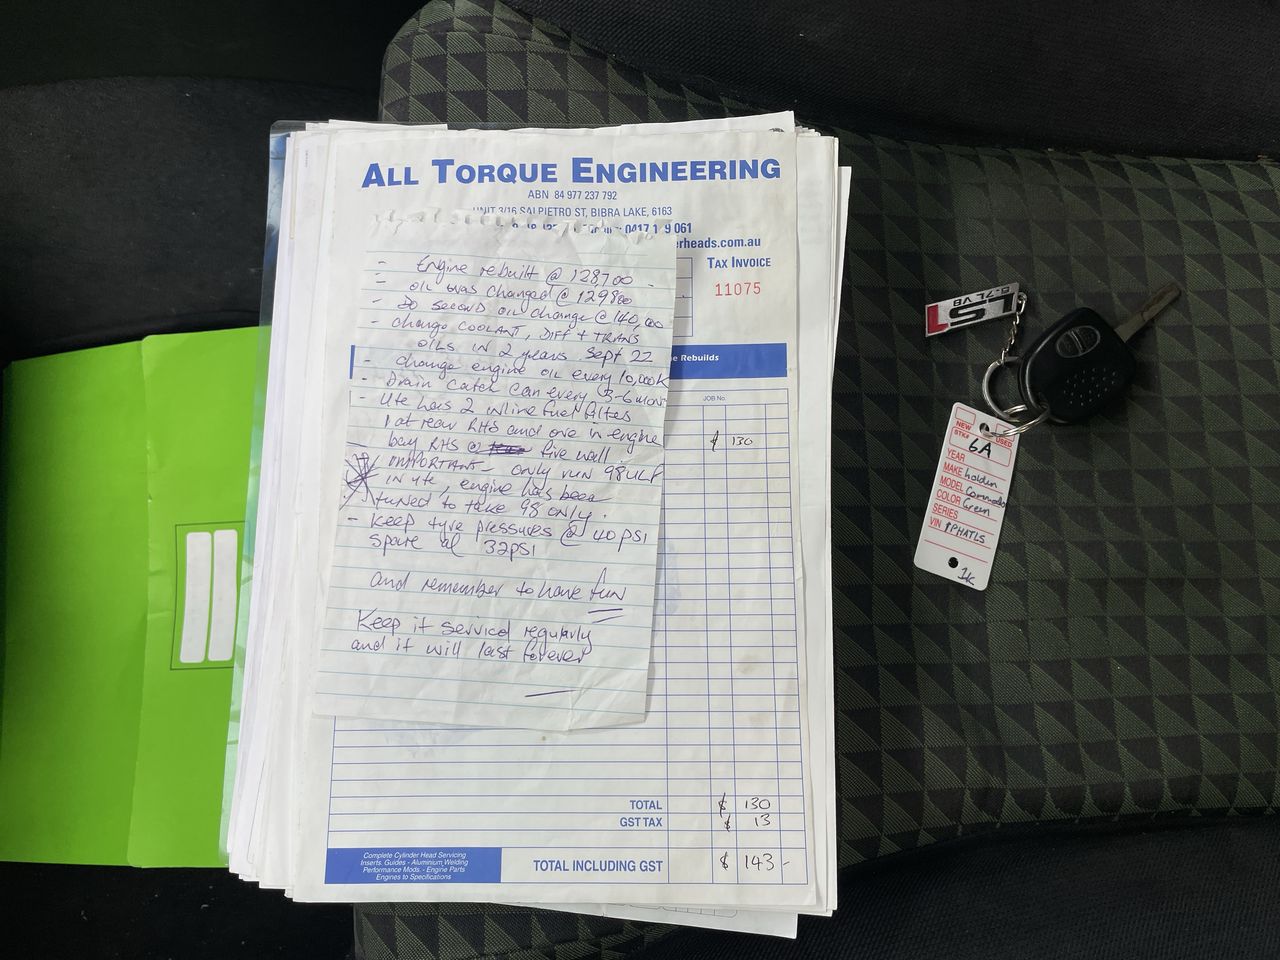 ALL TORQUE ENGINEERING
ABN 84 977 237 792
UNIT 3/16 SALPIETRO ST, BIBRA LAKE, 6163
erheads.com.au
TAX INVOICE
11075
e Rebuilds
JOB No.
$ 130
- Engine rebuilt @ 128,700
- oil was changed @ 129800
- Do second oil change @ 140,000
- change COOLANT, DIFF + TRANS
oils IN 2 years Sept 22
- change engine oil every 10,000K
- Drain catch can every 3-6 mont
- Ute has 2 inline fuel filtes
1 at rear RHS and one in engine
bay RHS @ fire wall
IMPORTANT - only run 98 ULP
IN ute, engine has been
tuned to take 98 only.
- Keep tyre pressures @ 40 PSI
spare at 32PSI
and remember to have fun
Keep it serviced regularly
and it will last forever
TOTAL $ 130
GST TAX $ 13
TOTAL INCLUDING GST $ 143-
Complete Cylinder Head Servicing
Inserts. Guides - Aluminium Welding
Performance Mods. - Engine Parts
Engines to Specifications
LS1
5.7L V8
NEW USED
STK# 6A
YEAR
MAKE holden
MODEL Commodore
COLOR Green
SERIES
VIN 1PHATLS
1K